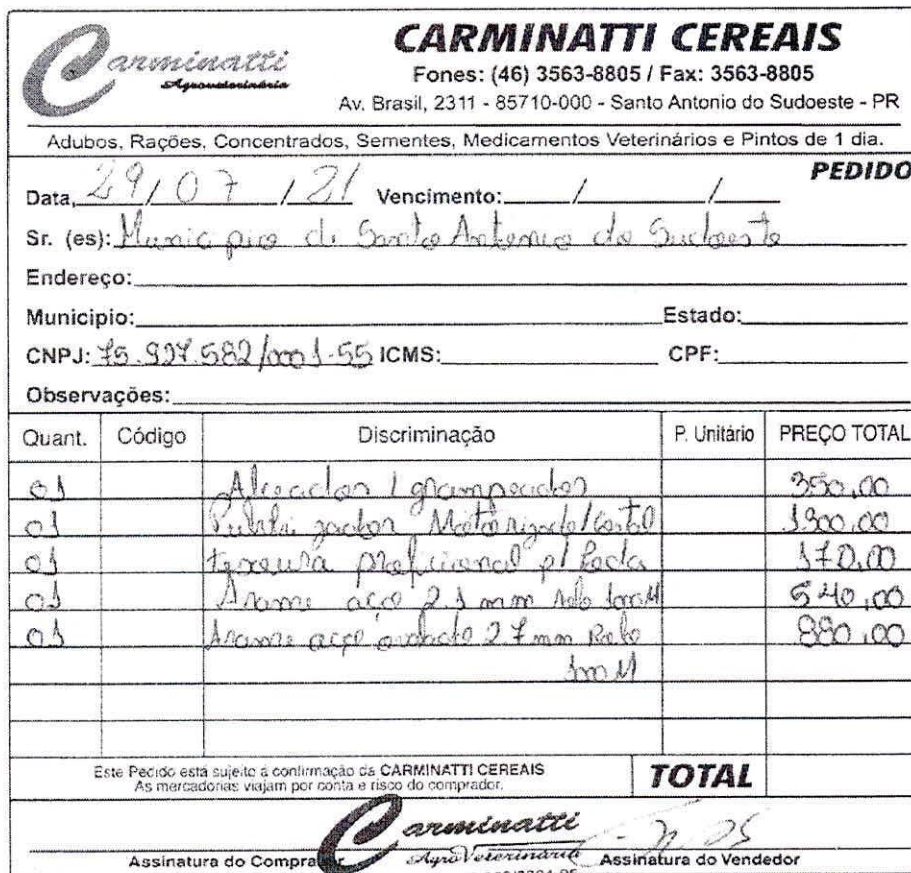 Carminatti
Agroveterinária
CARMINATTI CEREAIS
Fones: (46) 3563-8805 / Fax: 3563-8805
Av. Brasil, 2311 - 85710-000 - Santo Antonio do Sudoeste - PR
Adubos, Rações, Concentrados, Sementes, Medicamentos Veterinários e Pintos de 1 dia.
PEDIDO
Data, 29 / 07 / 21 Vencimento: / /
Sr. (es): Municipio de Santo Antonio do Sudoeste
Endereço:
Municipio: Estado:
CNPJ: 75.927.582/0001-55 ICMS: CPF:
Observações:
Quant. Código Discriminação P. Unitário PREÇO TOTAL
01 / grampeador 350,00
01 Motorizado/Costal 1300,00
01 p/ Poda 170,00
01 Arame aço 2.1 mm Rolo 1000 M 540,00
01 Arame aço ovalado 2.7 mm Rolo 880,00
1000 M
Este Pedido está sujeito a confirmação da CARMINATTI CEREAIS
As mercadorias viajam por conta e risco do comprador.
TOTAL
Carminatti
AgroVeterinária
Assinatura do Comprador Assinatura do Vendedor